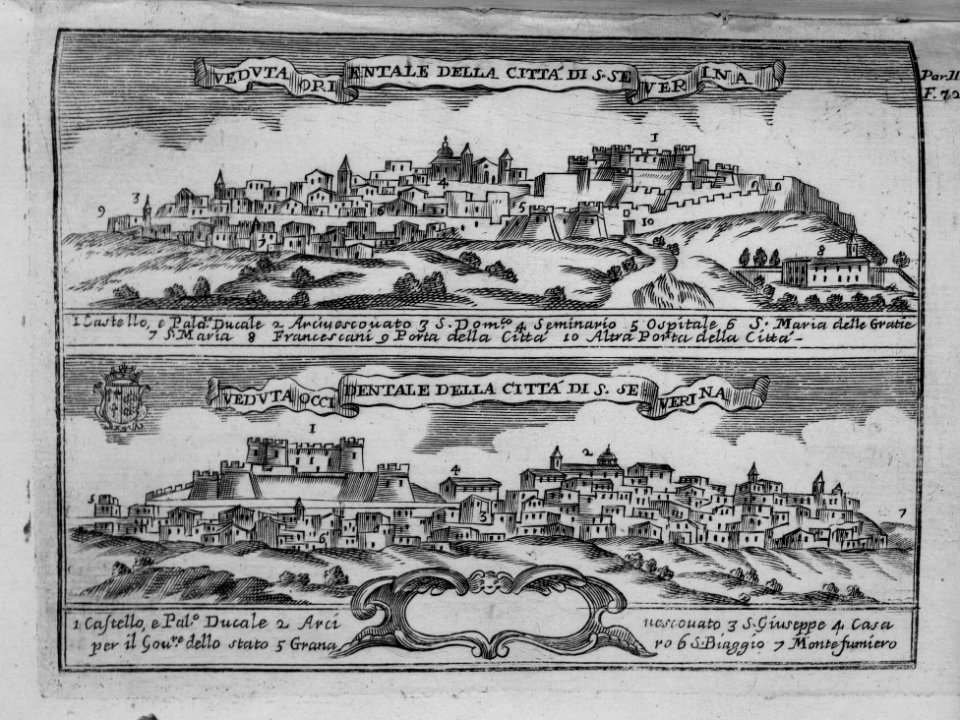 VEDVTA ORIENTALE DELLA CITTÀ DI S. SEVERINA
Par. II
F. 72
1
9 3 4 5 10 7 8
1 Castello, e Pal.º Ducale 2 Arciuescouato 3 S. Dom.co 4 Seminario 5 Ospitale 6 S. Maria delle Gratie
7 S. Maria 8 Francescani 9 Porta della Città 10 Altra Porta della Città
VEDVTA OCCIDENTALE DELLA CITTÀ DI S. SEVERINA
1
2
5 4 3 7
1 Castello, e Pal.º Ducale 2 Arciuescouato 3 S. Giuseppe 4 Casa
per il Gou.re dello stato 5 Granaro 6 S. Biaggio 7 Montefumiero